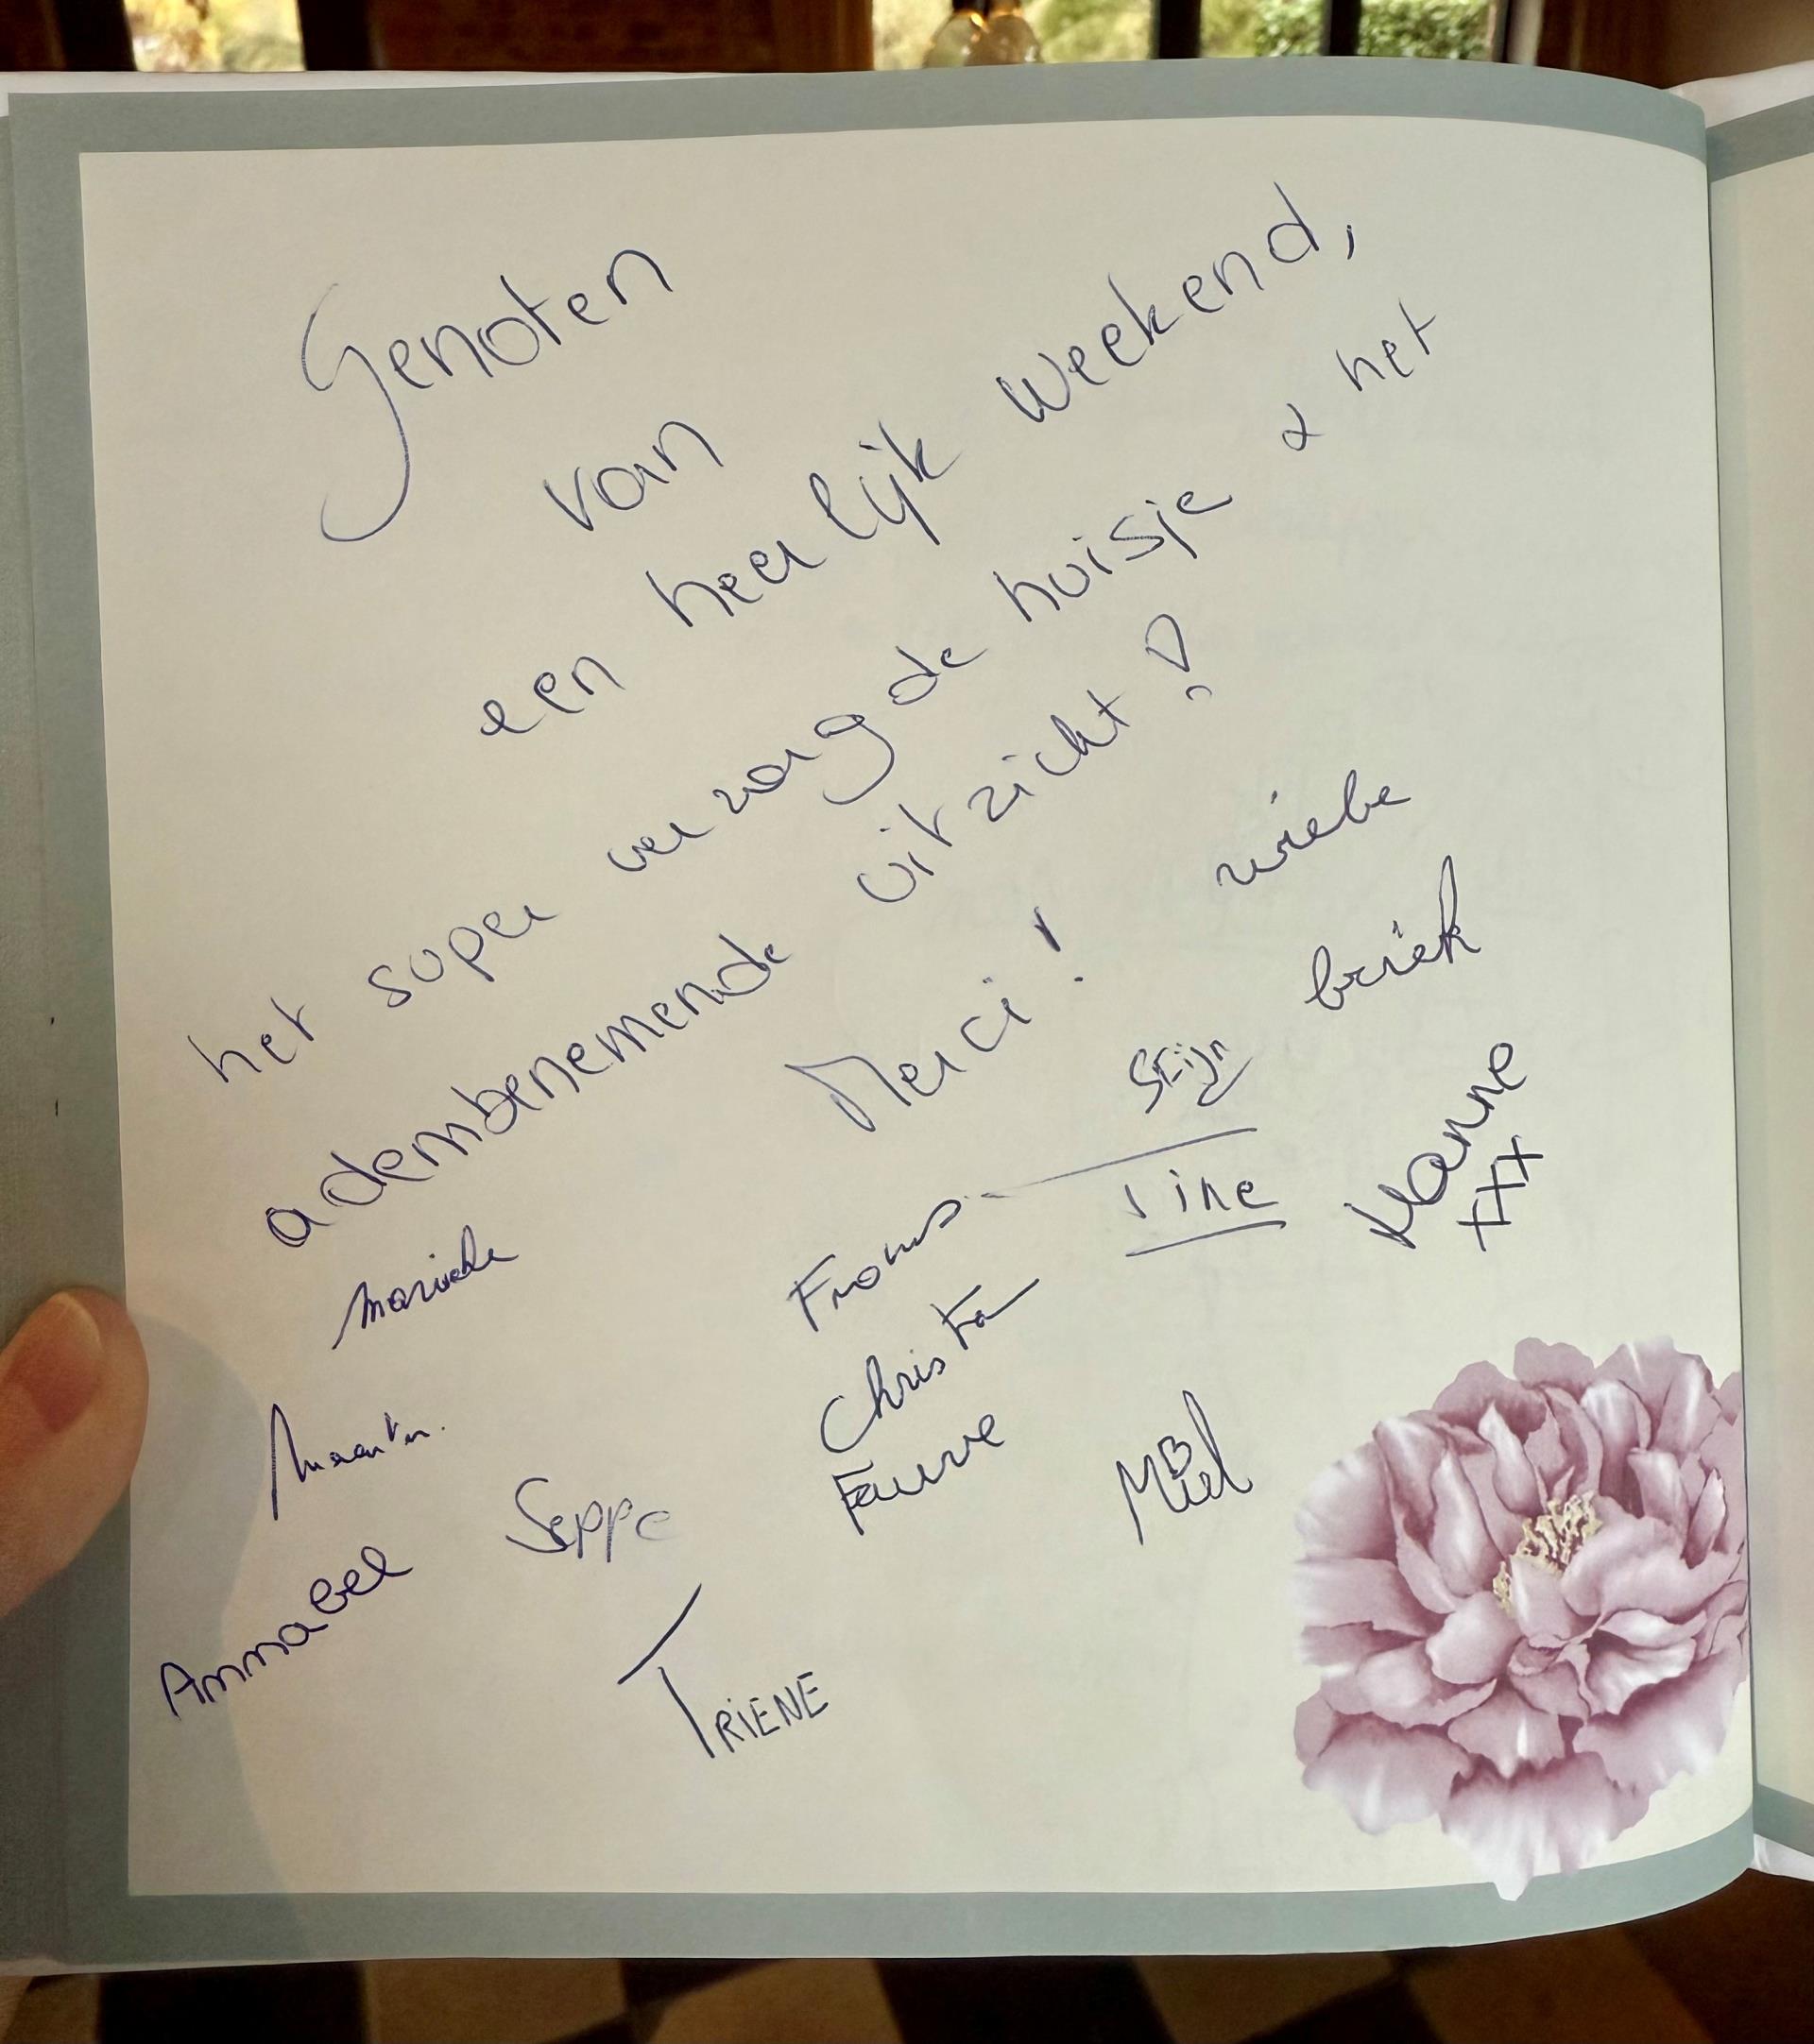 Genoten
van
een heerlijk weekend,
het super verzorgde huisje & het
adembenemende uitzicht!
Merci!
wiebe
briek
Stijn
Tine
Hanne
xxx
Frans
Christa
Fauve
Marieke
Maarten.
Annabel
Seppe
TRIENE